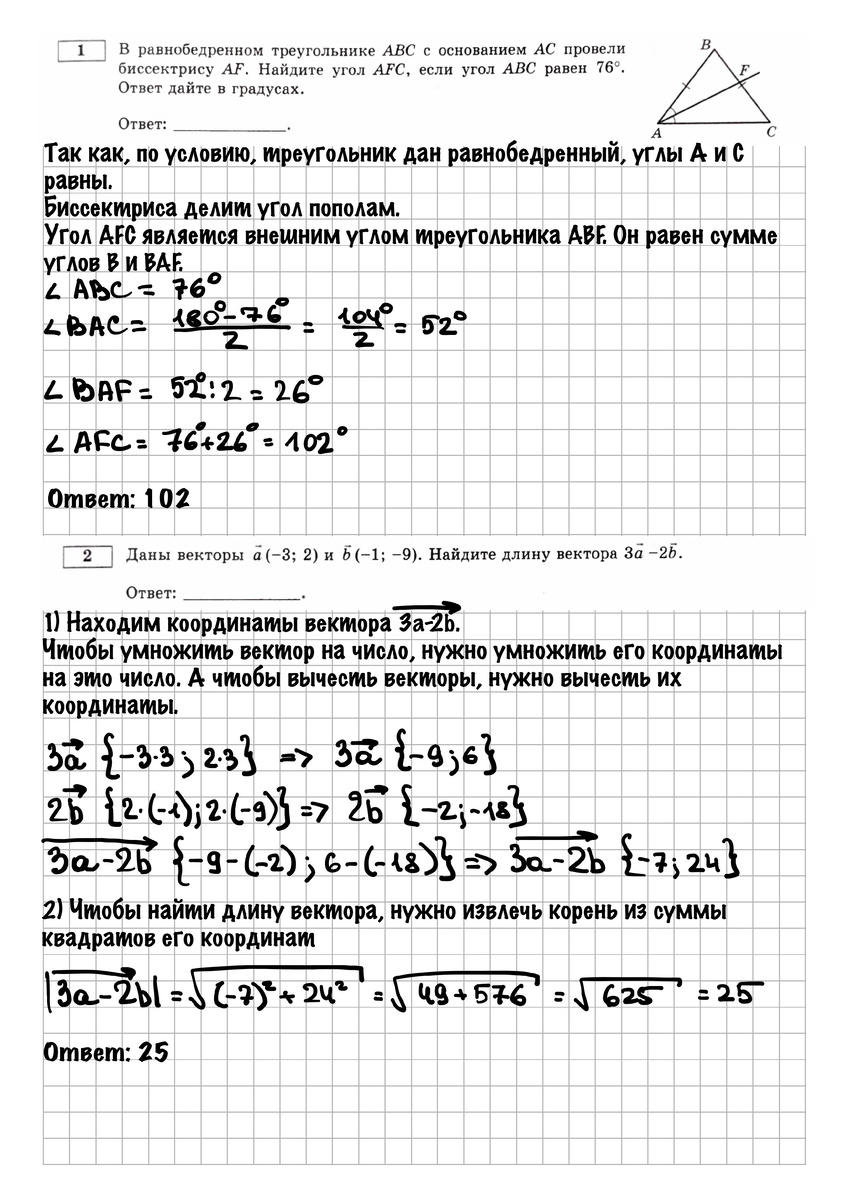 1
В равнобедренном треугольнике ABC с основанием AC провели
биссектрису AF. Найдите угол AFC, если угол ABC равен 76°.
Ответ дайте в градусах.
Ответ: ____________.
B
F
A
C
Так как, по условию, треугольник дан равнобедренный, углы A и C
равны.
Биссектриса делит угол пополам.
Угол AFC является внешним углом треугольника ABF. Он равен сумме
углов B и BAF.
∠ ABC = 76°
∠ BAC = (180° - 76°)/2 = 104°/2 = 52°
∠ BAF = 52° : 2 = 26°
∠ AFC = 76° + 26° = 102°
Ответ: 102
2
Даны векторы a⃗ (−3; 2) и b⃗ (−1; −9). Найдите длину вектора 3a⃗ − 2b⃗.
Ответ: ____________.
1) Находим координаты вектора 3a-2b.
Чтобы умножить вектор на число, нужно умножить его координаты
на это число. А чтобы вычесть векторы, нужно вычесть их
координаты.
3a⃗ {-3·3 ; 2·3} => 3a⃗ {-9 ; 6}
2b⃗ {2·(-1) ; 2·(-9)} => 2b⃗ {-2 ; -18}
3a-2b {-9-(-2) ; 6-(-18)} => 3a-2b {-7 ; 24}
2) Чтобы найти длину вектора, нужно извлечь корень из суммы
квадратов его координат
|3a-2b| = √((-7)² + 24²) = √(49 + 576) = √625 = 25
Ответ: 25